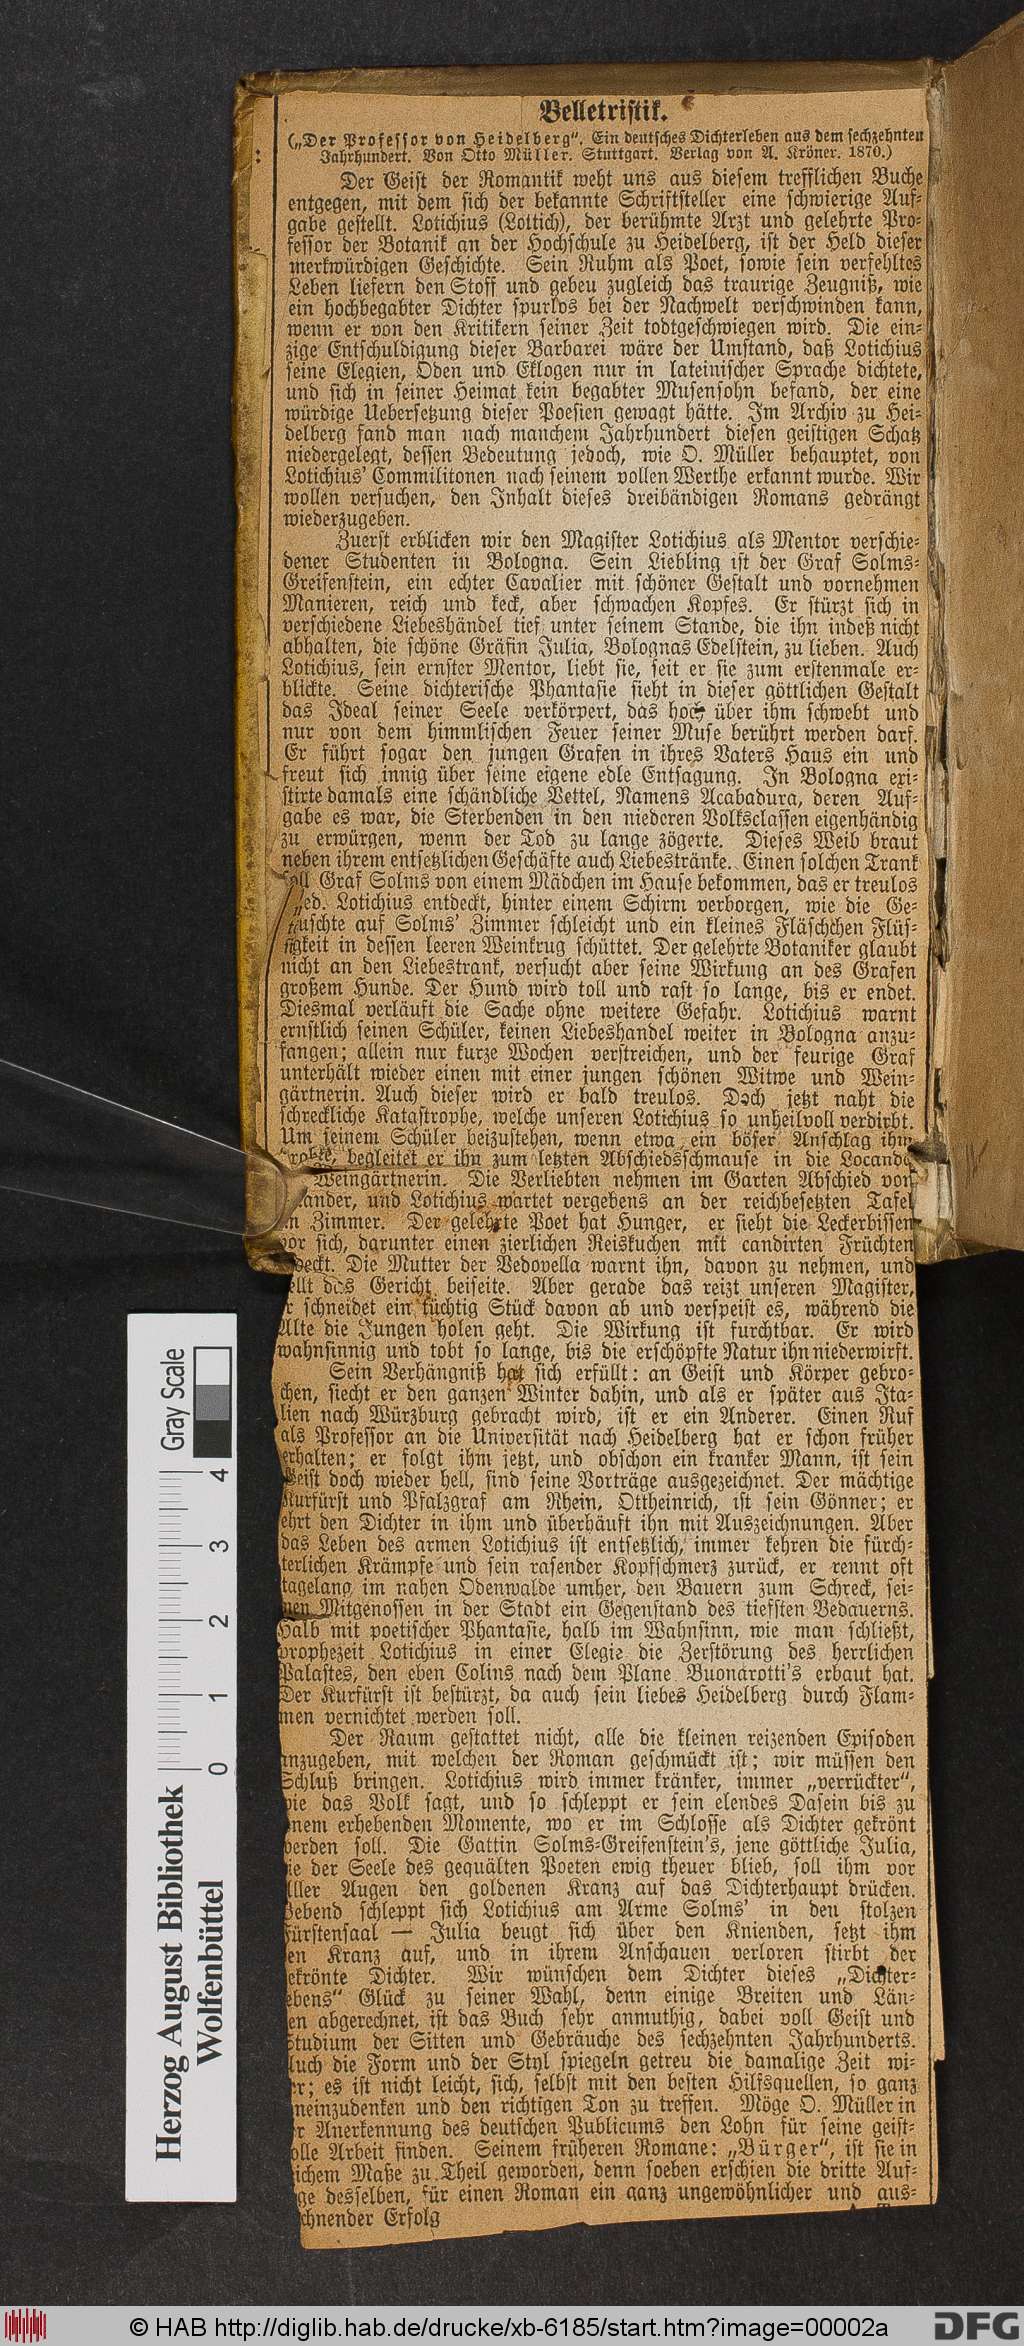 Belletristik.
(„Der Professor von Heidelberg“. Ein deutsches Dichterleben aus dem sechzehnten
Jahrhundert. Von Otto Müller. Stuttgart. Verlag von A. Kröner. 1870.)
Der Geist der Romantik weht uns aus diesem trefflichen Buche
entgegen, mit dem sich der bekannte Schriftsteller eine schwierige Auf-
gabe gestellt. Lotichius (Lottich), der berühmte Arzt und gelehrte Pro-
fessor der Botanik an der Hochschule zu Heidelberg, ist der Held dieser
merkwürdigen Geschichte. Sein Ruhm als Poet, sowie sein verfehltes
Leben liefern den Stoff und gebeu zugleich das traurige Zeugniß, wie
ein hochbegabter Dichter spurlos bei der Nachwelt verschwinden kann,
wenn er von den Kritikern seiner Zeit todtgeschwiegen wird. Die ein-
zige Entschuldigung dieser Barbarei wäre der Umstand, daß Lotichius
seine Elegien, Oden und Eklogen nur in lateinischer Sprache dichtete,
und sich in seiner Heimat kein begabter Musensohn befand, der eine
würdige Uebersetzung dieser Poesien gewagt hätte. Im Archiv zu Hei-
delberg fand man nach manchem Jahrhundert diesen geistigen Schatz
niedergelegt, dessen Bedeutung jedoch, wie O. Müller behauptet, von
Lotichius' Commilitonen nach seinem vollen Werthe erkannt wurde. Wir
wollen versuchen, den Inhalt dieses dreibändigen Romans gedrängt
wiederzugeben.
Zuerst erblicken wir den Magister Lotichius als Mentor verschie-
dener Studenten in Bologna. Sein Liebling ist der Graf Solms-
Greifenstein, ein echter Cavalier mit schöner Gestalt und vornehmen
Manieren, reich und keck, aber schwachen Kopfes. Er stürzt sich in
verschiedene Liebeshändel tief unter seinem Stande, die ihn indeß nicht
abhalten, die schöne Gräfin Julia, Bolognas Edelstein, zu lieben. Auch
Lotichius, sein ernster Mentor, liebt sie, seit er sie zum erstenmale er-
blickte. Seine dichterische Phantasie sieht in dieser göttlichen Gestalt
das Ideal seiner Seele verkörpert, das hoch über ihm schwebt und
nur von dem himmlischen Feuer seiner Muse berührt werden darf.
Er führt sogar den jungen Grafen in ihres Vaters Haus ein und
freut sich innig über seine eigene edle Entsagung. In Bologna exi-
stirte damals eine schändliche Vettel, Namens Acabadura, deren Auf-
gabe es war, die Sterbenden in den niederen Volksclassen eigenhändig
zu erwürgen, wenn der Tod zu lange zögerte. Dieses Weib braut
neben ihrem entsetzlichen Geschäfte auch Liebestränke. Einen solchen Trank
soll Graf Solms von einem Mädchen im Hause bekommen, das er treulos
ed. Lotichius entdeckt, hinter einem Schirm verborgen, wie die Ge-
tuschte auf Solms' Zimmer schleicht und ein kleines Fläschchen Flüs-
sigkeit in dessen leeren Weinkrug schüttet. Der gelehrte Botaniker glaubt
nicht an den Liebestrank, versucht aber seine Wirkung an des Grafen
großem Hunde. Der Hund wird toll und rast so lange, bis er endet.
Diesmal verläuft die Sache ohne weitere Gefahr. Lotichius warnt
ernstlich seinen Schüler, keinen Liebeshandel weiter in Bologna anzu-
fangen; allein nur kurze Wochen verstreichen, und der feurige Graf
unterhält wieder einen mit einer jungen schönen Witwe und Wein-
gärtnerin. Auch dieser wird er bald treulos. Doch jetzt naht die
schreckliche Katastrophe, welche unseren Lotichius so unheilvoll verdirbt.
Um seinem Schüler beizustehen, wenn etwa ein böser Anschlag ihm
drohte, begleitet er ihn zum letzten Abschiedsschmause in die Locanda
Weingärtnerin. Die Verliebten nehmen im Garten Abschied von
ander, und Lotichius wartet vergebens an der reichbesetzten Tafel
m Zimmer. Der gelehrte Poet hat Hunger, er sieht die Leckerbissen
vor sich, darunter einen zierlichen Reiskuchen mit candirten Früchten
deckt. Die Mutter der Vedovella warnt ihn, davon zu nehmen, und
ellt das Gericht beiseite. Aber gerade das reizt unseren Magister,
r schneidet ein tüchtig Stück davon ab und verspeist es, während die
Alte die Jungen holen geht. Die Wirkung ist furchtbar. Er wird
wahnsinnig und tobt so lange, bis die erschöpfte Natur ihn niederwirft.
Sein Verhängniß hat sich erfüllt: an Geist und Körper gebro-
chen, siecht er den ganzen Winter dahin, und als er später aus Ita-
lien nach Würzburg gebracht wird, ist er ein Anderer. Einen Ruf
als Professor an die Universität nach Heidelberg hat er schon früher
erhalten; er folgt ihm jetzt, und obschon ein kranker Mann, ist sein
Geist doch wieder hell, sind seine Vorträge ausgezeichnet. Der mächtige
Kurfürst und Pfalzgraf am Rhein, Ottheinrich, ist sein Gönner; er
ehrt den Dichter in ihm und überhäuft ihn mit Auszeichnungen. Aber
das Leben des armen Lotichius ist entsetzlich, immer kehren die fürch-
terlichen Krämpfe und sein rasender Kopfschmerz zurück, er rennt oft
tagelang im nahen Odenwalde umher, den Bauern zum Schreck, sei-
nen Mitgenossen in der Stadt ein Gegenstand des tiefsten Bedauerns.
Halb mit poetischer Phantasie, halb im Wahnsinn, wie man schließt,
prophezeit Lotichius in einer Elegie die Zerstörung des herrlichen
Palastes, den eben Colins nach dem Plane Buonarotti's erbaut hat.
Der Kurfürst ist bestürzt, da auch sein liebes Heidelberg durch Flam-
men vernichtet werden soll.
Der Raum gestattet nicht, alle die kleinen reizenden Episoden
anzugeben, mit welchen der Roman geschmückt ist; wir müssen den
Schluß bringen. Lotichius wird immer kränker, immer „verrückter“,
wie das Volk sagt, und so schleppt er sein elendes Dasein bis zu
inem erhebenden Momente, wo er im Schlosse als Dichter gekrönt
werden soll. Die Gattin Solms-Greifenstein's, jene göttliche Julia,
ie der Seele des gequälten Poeten ewig theuer blieb, soll ihm vor
Aller Augen den goldenen Kranz auf das Dichterhaupt drücken.
Bebend schleppt sich Lotichius am Arme Solms' in den stolzen
Fürstensaal — Julia beugt sich über den Knienden, setzt ihm
en Kranz auf, und in ihrem Anschauen verloren stirbt der
ekrönte Dichter. Wir wünschen dem Dichter dieses „Dichter-
ebens“ Glück zu seiner Wahl, denn einige Breiten und Län-
en abgerechnet, ist das Buch sehr anmuthig, dabei voll Geist und
Studium der Sitten und Gebräuche des sechzehnten Jahrhunderts.
Auch die Form und der Styl spiegeln getreu die damalige Zeit wi-
er; es ist nicht leicht, sich, selbst mit den besten Hilfsquellen, so ganz
ineinzudenken und den richtigen Ton zu treffen. Möge O. Müller in
er Anerkennung des deutschen Publicums den Lohn für seine geist-
olle Arbeit finden. Seinem früheren Romane: „Bürger“, ist sie in
eichem Maße zu Theil geworden, denn soeben erschien die dritte Auf-
ge desselben, für einen Roman ein ganz ungewöhnlicher und aus-
chnender Erfolg
Gray Scale
4
3
2
1
0
Herzog August Bibliothek
Wolfenbüttel
© HAB http://diglib.hab.de/drucke/xb-6185/start.htm?image=00002a
DFG